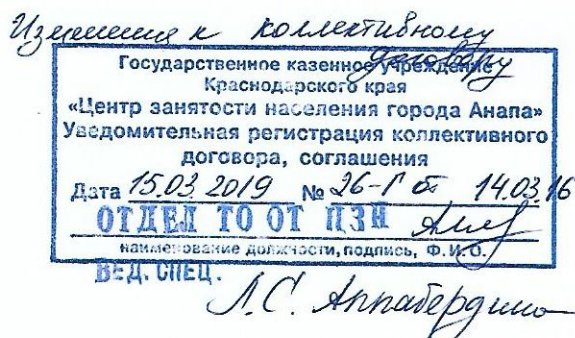 Изменения к коллективному
договору
Государственное казенное учреждение
Краснодарского края
«Центр занятости населения города Анапа»
Уведомительная регистрация коллективного
договора, соглашения
Дата 15.03.2019 № 26-Г от 14.03.16
ОТДЕЛ ТО ОТ ЦЗН
наименование должности, подпись, Ф.И.О.
ВЕД. СПЕЦ.
Л.С.